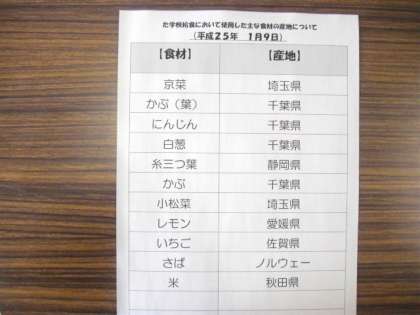 た学校給食において使用した主な食材の産地について
(平成25年 1月9日)
【食材】 【産地】
京菜 埼玉県
かぶ(葉) 千葉県
にんじん 千葉県
白葱 千葉県
糸三つ葉 静岡県
かぶ 千葉県
小松菜 埼玉県
レモン 愛媛県
いちご 佐賀県
さば ノルウェー
米 秋田県